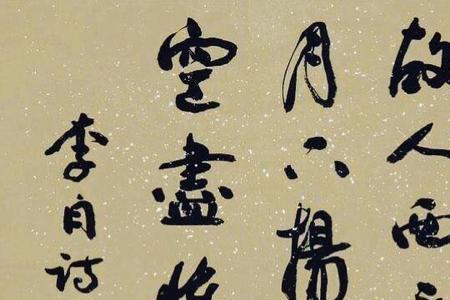 故人西
月下揚
空盡
李白诗